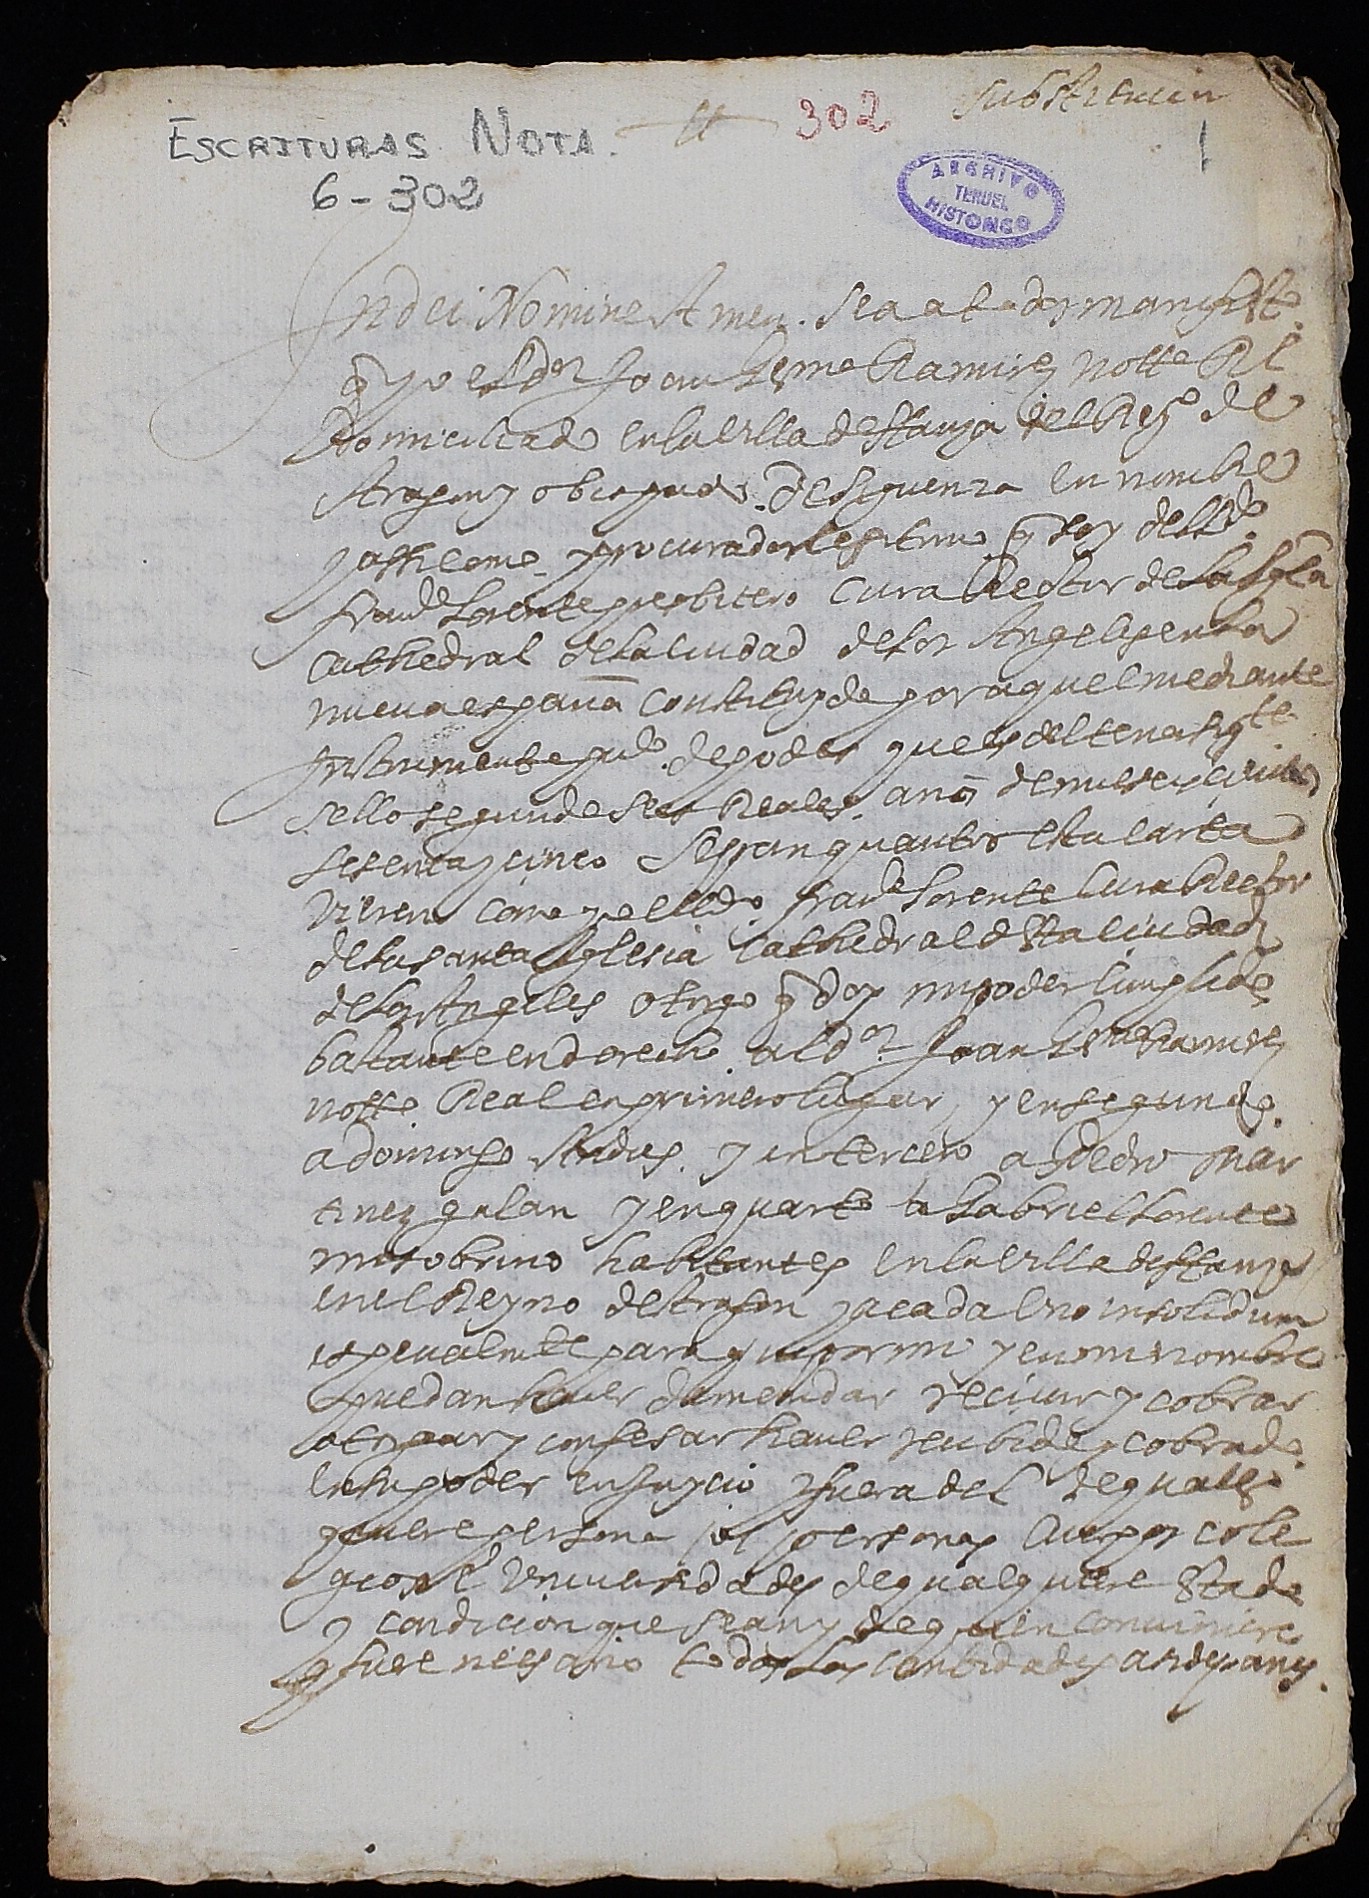 substitucion
ESCRITURAS NOTA.
302
1
6-302
ARCHIVO
TERUEL
HISTORICO
In dei Nomine Amen. Sea a todos manifiesto
q yo el Dor Joan Ramirez notto Rl
Domiciliado en la villa de Ariza del Reyo de
Aragon y obispado de siguenza en nombre
y assi como procurador legitimo q soy del Ldo
franco Lorente presbitero Cura Rector de la Sta
Cathedral de la ciudad de los Angeles en la
nueva españa constituydo por aquel mediante
instrumento puco de poder que es del tenor sigte
sello segundo seis Reales años de mil y seiscientos
sesenta y cinco Sepan quantos esta carta
vieren como yo el Ldo franco Lorente Cura Rector
de la santa Iglesia Cathedral desta ciudad
de los Angeles otorgo q doy mi poder cumplido
bastante en derecho al Dor Joan Ramirez
notto Real en primero lugar, y en segundo
a domingo Andres y en tercero a Pedro Mar
tinez galan y en quarto a Gabriel Lorente
mi sobrino habitantes en la villa de Ariza
en el Reyno de Aragon y a cada uno insolidum
especialmte para q por mi y en mi nombre
puedan haver demandar recivir y cobrar
otorgar y confesar haver recibido y cobrado
en su poder en juycio y fuera del de quales
quiere persona o personas cuerpos cole
gios e Universidades de qualquiere estado
y condicion que sean y de quien conviniere
y fuere necesario todas las cantidades